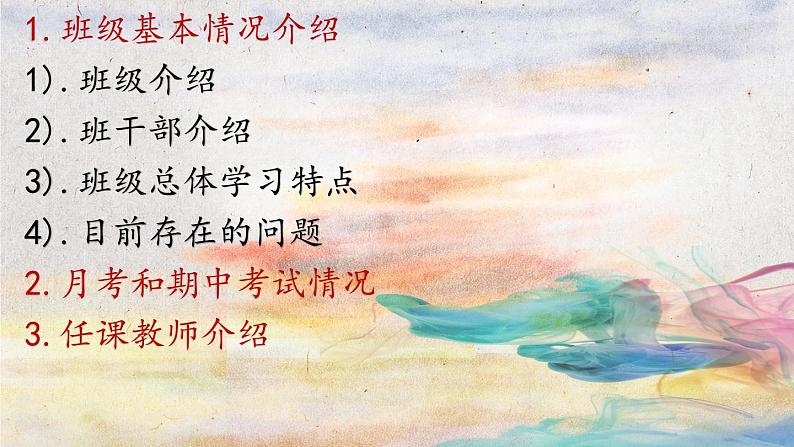 1.班级基本情况介绍
1).班级介绍
2).班干部介绍
3).班级总体学习特点
4).目前存在的问题
2.月考和期中考试情况
3.任课教师介绍